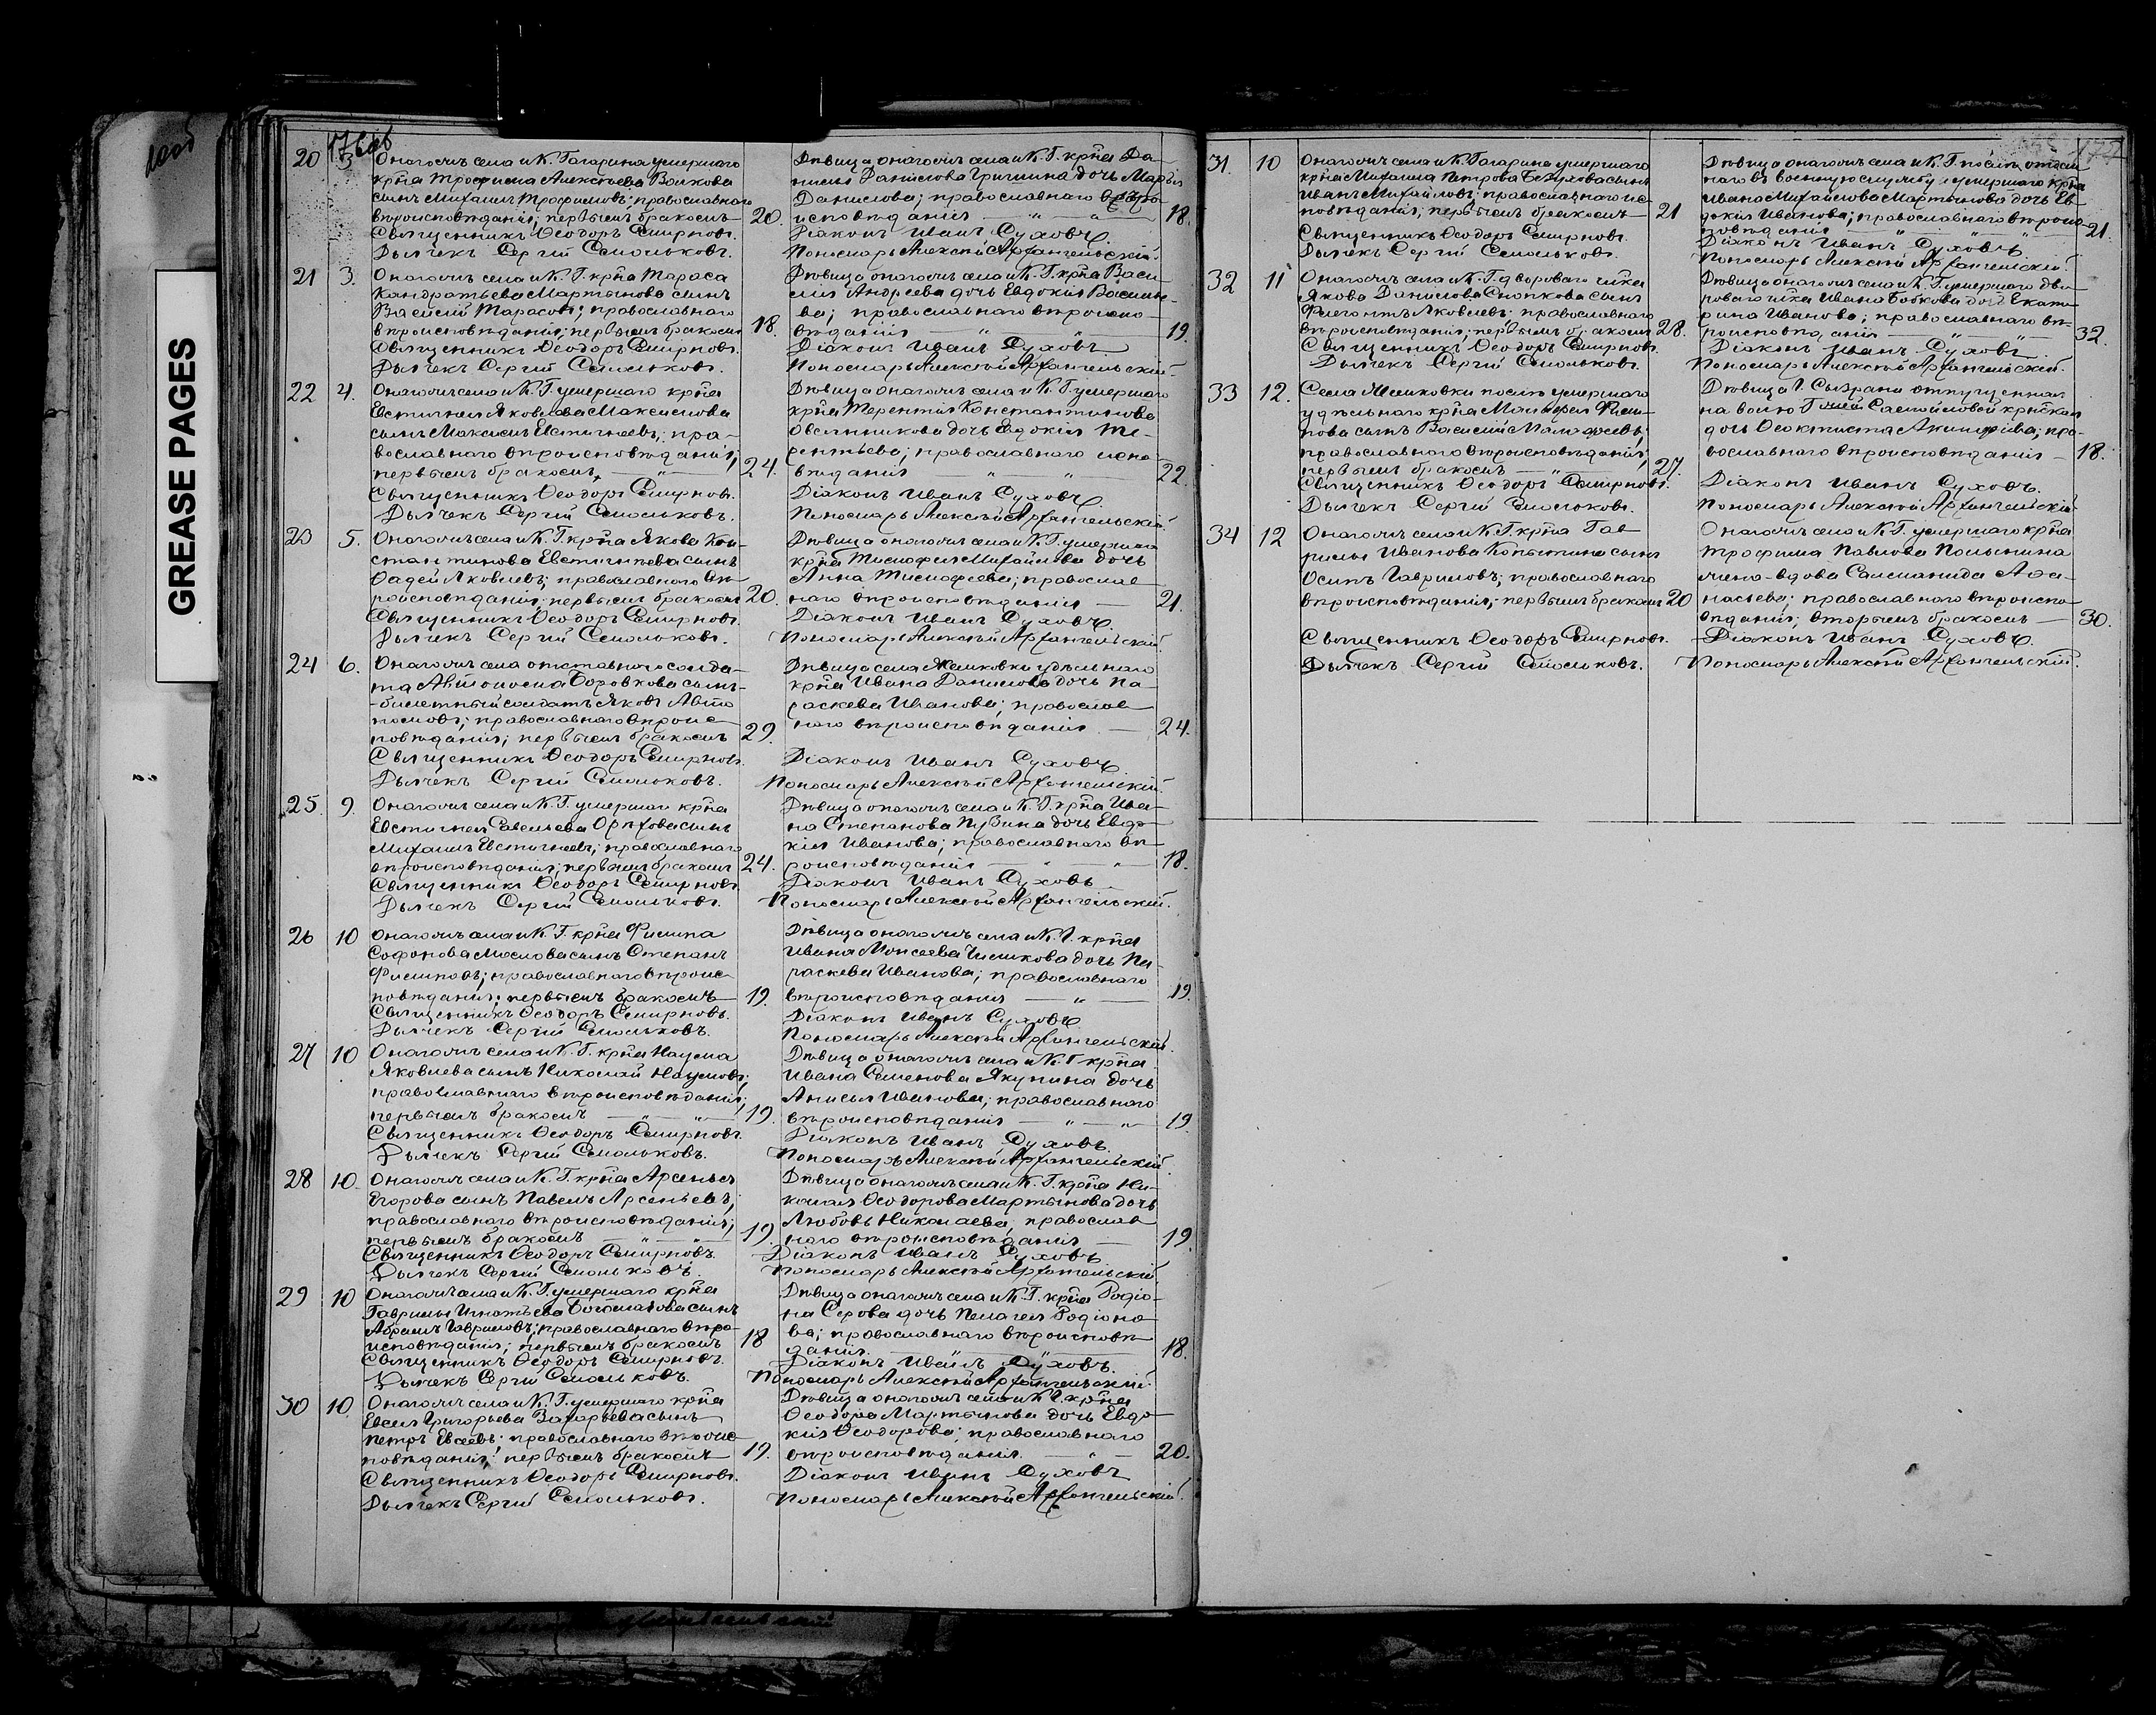 GREASE PAGES
176об
20 3 Оногожъ села и К. Гагарина умершаго
крⷭ҇на Трофима Алексѣева Волкова
сынъ Михаилъ Трофимовъ; православнаго
вѣроисповѣданія; первымъ бракомъ 20.
Священникъ Ѳеодоръ Смирновъ.
Дьячекъ Сергій Смольковъ.
Дѣвица оногожъ села и К. Г. крⷭ҇на Да-
нилы Данилова Гришина дочь Марья
Данилова; православнаго вѣро-
исповѣданія — „ — „ — 18.
Діаконъ Иванъ Суховъ.
Пономарь Алексѣй Архангельскій.
21 3. Оногожъ села и К. Г. крⷭ҇на Тараса
Кондратьева Мартынова сынъ
Василій Тарасовъ; православнаго
вѣроисповѣданія; первымъ бракомъ 18.
Священникъ Ѳеодоръ Смирновъ.
Дьячекъ Сергій Смольковъ.
Дѣвица оногожъ села и К. Г. крⷭ҇на Васи-
лія Андреева дочь Евдокія Василь-
ева; православнаго вѣроиспо-
вѣданія — „ — „ — 19.
Діаконъ Иванъ Суховъ.
Пономарь Алексѣй Архангельскій
22 4. Оногожъ села и К. Г. умершаго крⷭ҇на
Евстигнея Яковлева Максимова
сынъ Максимъ Евстигнеевъ; пра-
вославнаго вѣроисповѣданія;
первымъ бракомъ, — „ — 24.
Священникъ Ѳеодоръ Смирновъ.
Дьячекъ Сергій Смольковъ.
Дѣвица оногожъ села и К. Г. умершаго
крⷭ҇на Терентія Константинова
Овсянникова дочь Евдокія Те-
рентьева; православнаго испо-
вѣданія „ „ 22.
Діаконъ Иванъ Суховъ.
Пономарь Алексѣй Архангельскій
23 5. Оногожъ села и К. Г. крⷭ҇на Якова Кон-
стантинова Евстигнѣева сынъ
Фадей Яковлевъ; православнаго вѣ-
роисповѣданія; первымъ бракомъ 20.
Священникъ Ѳеодоръ Смирновъ.
Дьячекъ Сергій Смольковъ.
Дѣвица оногожъ села и К. Г. умершаго
крⷭ҇на Тимофея Михайлова дочь
Анна Тимофеева; православ-
наго вѣроисповѣданія — 21.
Діаконъ Иванъ Суховъ.
Пономарь Алексѣй Архангельскій.
24 6. Оногожъ села отставнаго солда-
та Автонома Боровкова сынъ
билетный солдатъ Яковъ Авто-
номовъ; православнаго вѣроис-
повѣданія; первымъ бракомъ 29.
Священникъ Ѳеодоръ Смирновъ.
Дьячекъ Сергій Смольковъ.
Дѣвица села удѣльнаго
крⷭ҇на Ивана Данилова дочь Па-
раскева Иванова; православ-
наго вѣроисповѣданія. — 24.
Діаконъ Иванъ Суховъ
Пономарь Алексѣй Архангельскій.
25. 9. Оногожъ села и К. Г. умершаго крⷭ҇на
Евстигнея Савельева Орѣхова сынъ
Михаилъ Евстигнеевъ; православнаго
вѣроисповѣданія; первымъ бракомъ 24.
Священникъ Ѳеодоръ Смирновъ
Дьячекъ Сергій Смольковъ.
Дѣвица оногожъ села и К. Г. крⷭ҇на Ива-
на Степанова Пузина дочь Евдо-
кія Иванова; православнаго вѣ-
роисповѣданія — „ — „ 18.
Діаконъ Иванъ Суховъ
Пономарь Алексѣй Архангельскій.
26 10 Оногожъ села и К. Г. крⷭ҇на Филипа
Софонова Маслова сынъ Степанъ
Филиповъ; православнаго вѣроис-
повѣданія; первымъ бракомъ 19.
Священникъ Ѳеодоръ Смирновъ.
Дьячекъ Сергій Смольковъ.
Дѣвица оногожъ села и К. Г. крⷭ҇на
Ивана Моисеева дочь Па-
раскева Иванова; православнаго
вѣроисповѣданія — „ — 19.
Діаконъ Иванъ Суховъ
Пономарь Алексѣй Архангельскій.
27 10 Оногожъ села и К. Г. крⷭ҇на Наума
Яковлева сынъ Николай Наумовъ;
православнаго вѣроисповѣданія;
первымъ бракомъ — „ — „ — 19.
Священникъ Ѳеодоръ Смирновъ.
Дьячекъ Сергій Смольковъ.
Дѣвица оногожъ села и К. Г. крⷭ҇на
Ивана Семенова Якунина дочь
Анисья Иванова; православнаго
вѣроисповѣданія — „ — „ 19.
Діаконъ Иванъ Суховъ
Пономарь Алексѣй Архангельскій
28 10. Оногожъ села и К. Г. крⷭ҇на Арсенья
Егорова сынъ Павелъ Арсеньевъ;
православнаго вѣроисповѣданія;
первымъ бракомъ — „ — „ — 19.
Священникъ Ѳеодоръ Смирновъ.
Дьячекъ Сергій Смольковъ
Дѣвица оногожъ села и К. Г. крⷭ҇на Ни-
колая Ѳеодорова Мартынова дочь
Любовь Николаева; православ-
наго вѣроисповѣданія — 19.
Діаконъ Иванъ Суховъ
Пономарь Алексѣй Архангельскій.
29 10 Оногожъ села и К. Г. умершаго крⷭ҇на
Гаврилы Игнатьева сынъ
Абрамъ Гавриловъ; православнаго вѣро-
исповѣданія; первымъ бракомъ 18
Священникъ Ѳеодоръ Смирновъ.
Дьячекъ Сергій Смольковъ.
Дѣвица оногожъ села и К. Г. крⷭ҇на Родіо-
на Серова дочь Пелагея Родіоно-
ва; православнаго вѣроисповѣ-
данія. — 18.
Діаконъ Иванъ Суховъ.
Пономарь Алексѣй Архангельскій.
30 10 Оногожъ села и К. Г. умершаго крⷭ҇на
Евсея Григорьева Захарьева сынъ
Петръ Евсеевъ; православнаго вѣроис-
повѣданія; первымъ бракомъ 19.
Священникъ Ѳеодоръ Смирновъ.
Дьячекъ Сергій Смольковъ.
Дѣвица оногожъ села и К. Г. крⷭ҇на
Ѳеодора Мартынова дочь Евдо-
кія Ѳеодорова; православнаго
вѣроисповѣданія. — „ — 20.
Діаконъ Иванъ Суховъ
Пономарь Алексѣй Архангельскій.
177
31. 10 Оногожъ села и К. Гагарина умершаго
крⷭ҇на Михаила Петрова сынъ
Иванъ Михайловъ; православнаго ис-
повѣданія; первымъ бракомъ 21
Священникъ Ѳеодоръ Смирновъ.
Дьячекъ Сергій Смольковъ.
Дѣвица оногожъ села и К. Г. послѣ отдан-
наго въ военную службу и умершаго крⷭ҇на
Ивана Михайлова Мартынова дочь Ев-
докія Иванова; православнаго вѣроис-
повѣданія — „ — „ 21.
Діаконъ Иванъ Суховъ
Пономарь Алексѣй Архангельскій.
32 11 Оногожъ села и К. Г. двороваго чⷧ҇ка
Якова Данилова Снопкова сынъ
Флегонтъ Яковлевъ; православнаго
вѣроисповѣданія; первымъ бракомъ 28.
Священникъ Ѳеодоръ Смирновъ.
Дьячекъ Сергій Смольковъ.
Дѣвица оногожъ села и К. Г. умершаго дво-
роваго чⷧ҇ка Ивана Бобкова дочь Екате-
рина Иванова; православнаго вѣ-
роисповѣданія — „ — „ 32.
Діаконъ Иванъ Суховъ
Пономарь Алексѣй Архангельскій.
33 12. Села послѣ умершаго
удѣльнаго крⷭ҇на Малафея Фили-
пова сынъ Василій Малафеевъ;
православнаго вѣроисповѣданія;
первымъ бракомъ — „ — 27.
Священникъ Ѳеодоръ Смирновъ.
Дьячекъ Сергій Смольковъ.
Дѣвица Г. Сызрани отпущенная
на волю Г жей Самойловой крⷭ҇ткая
дочь Ѳеоктиста Акинфіева; пра-
вославнаго вѣроисповѣданія — 18.
Діаконъ Иванъ Суховъ.
Пономарь Алексѣй Архангельскій
34 12 Оногожъ села и К. Г. крⷭ҇на Гав-
рилы Иванова Копытина сынъ
Осипъ Гавриловъ; православнаго
вѣроисповѣданія; первымъ бракомъ 20
Священникъ Ѳеодоръ Смирновъ.
Дьячекъ Сергій Смольковъ.
Оногожъ села и К. Г. умершаго крⷭ҇на
Трофима Павлова Полынина
жена-вдова Саломанида Афа-
насьева; православнаго вѣроиспо-
вѣданія; вторымъ бракомъ — 30.
Діаконъ Иванъ Суховъ.
Пономарь Алексѣй Архангельскій.